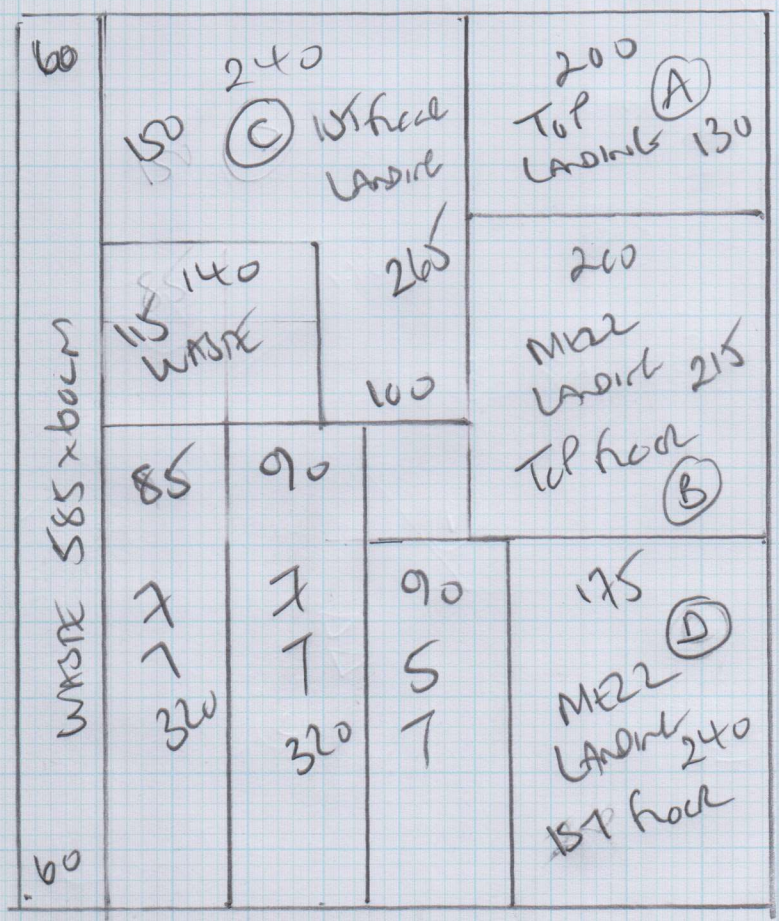 60
WASTE 585 x 60cm
60
240
150
C
1ST FLOOR
LANDING
265
100
140
115
WASTE
200
A
TOP
LANDING 130
200
MEZZ
LANDING 215
TOP FLOOR
B
85
7
7
320
90
7
7
320
90
5
7
175
D
MEZZ
LANDING 240
1ST FLOOR